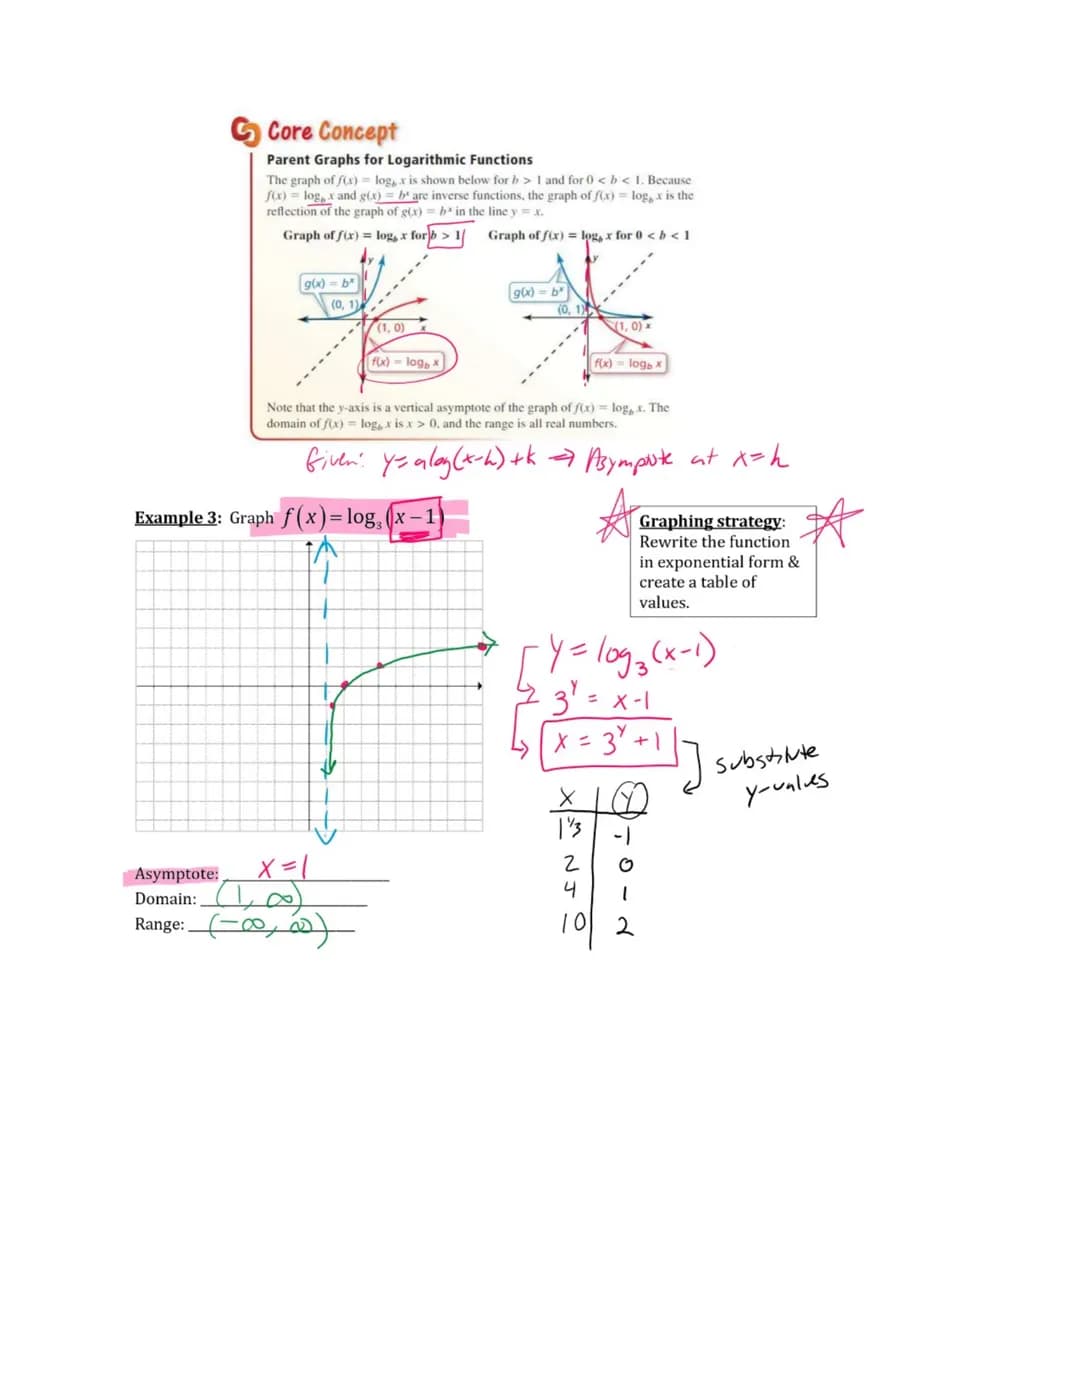 Core Concept
Parent Graphs for Logarithmic Functions
The graph of f(x) = log_b x is shown below for b > 1 and for 0 < b < 1. Because
f(x) = log_b x and g(x) = b^x are inverse functions, the graph of f(x) = log_b x is the
reflection of the graph of g(x) = b^x in the line y = x.
Graph of f(x) = log_b x for b > 1
Graph of f(x) = log_b x for 0 < b < 1
y
g(x) = b^x
(0, 1)
(1, 0)
x
f(x) = log_b x
y
g(x) = b^x
(0, 1)
(1, 0)
x
f(x) = log_b x
Note that the y-axis is a vertical asymptote of the graph of f(x) = log_b x. The
domain of f(x) = log_b x is x > 0, and the range is all real numbers.
Given: y = a log(x-h) + k ⇒ Asympote at x=h
Example 3: Graph f(x) = log₃(x − 1)
Graphing strategy:
Rewrite the function
in exponential form &
create a table of
values.
Y = log₃(x-1)
3^Y = x-1
x = 3^Y + 1
substitute
y-values
X | Y
1 1/3 | -1
2 | 0
4 | 1
10 | 2
Asymptote: x = 1
Domain: (1, ∞)
Range: (-∞, ∞)